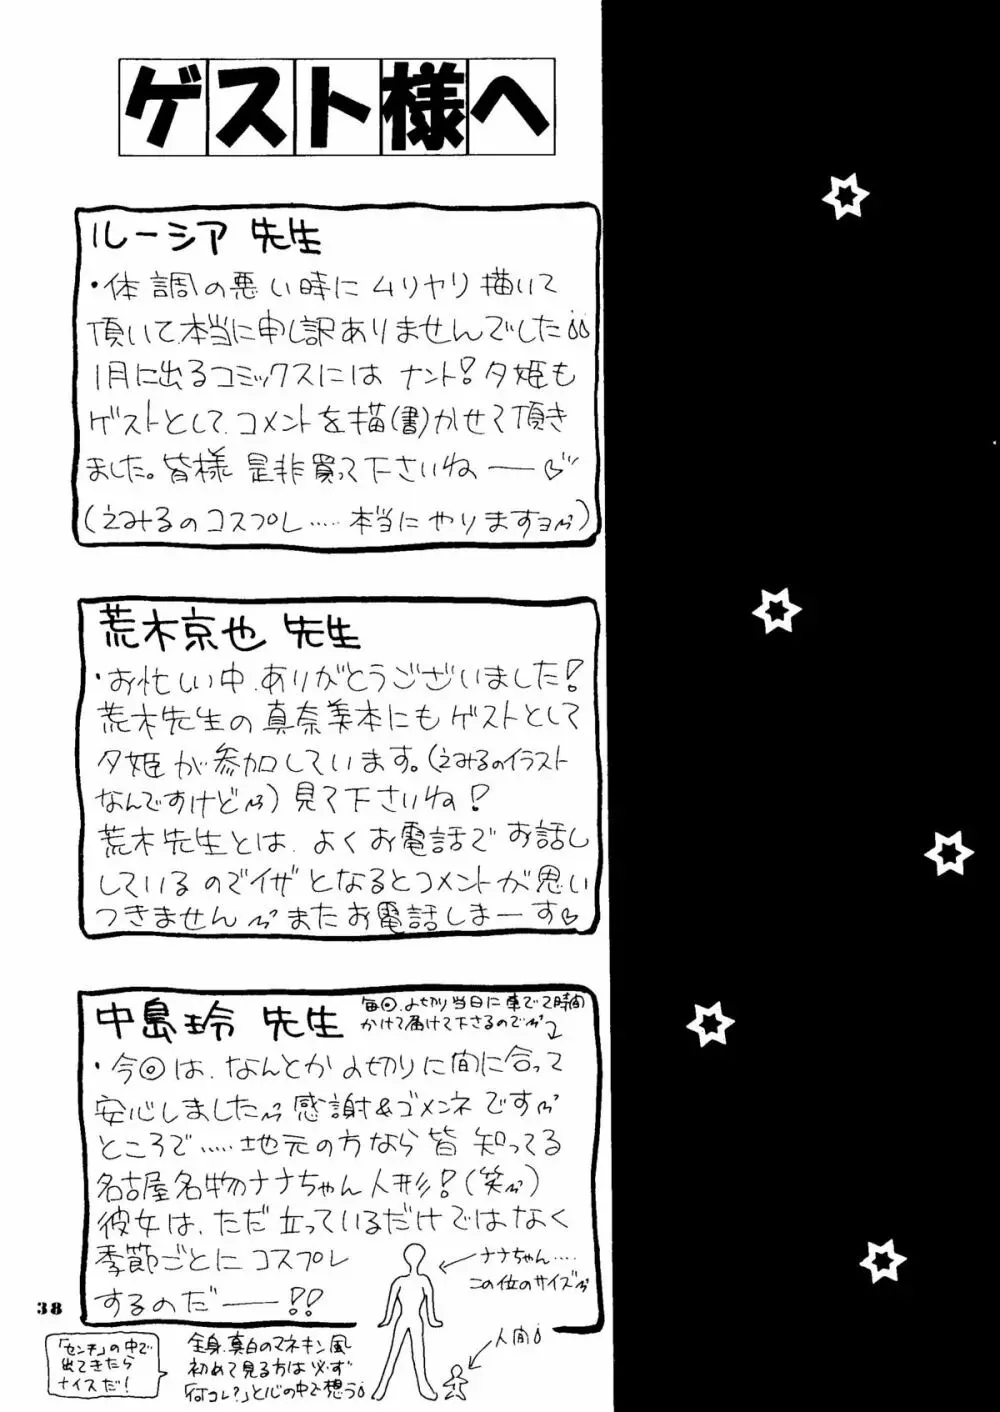 ゲスト様へ
ルーシア 先生
・体調の悪い時にムリヤリ描いて
頂いて、本当に申し訳ありませんでした
1月に出るコミックスには ナント!夕姫も
ゲストとして、コメントを描(書)かせて頂き
ました。皆様 是非買って下さいねー♡
(えみるのコスプレ……本当にやりますョ)
荒木京也 先生
・お忙しい中、ありがとうございました!
荒木先生の真奈美本にもゲストとして
夕姫が参加しています。(えみるのイラスト
なんですけど)見て下さいね!
荒木先生とは、よくお電話でお話し
しているのでイザとなるとコメントが思い
つきません またお電話しまーす♡
中島玲 先生
毎回、〆切り当日に車で2時間
かけて届けて下さるので
・今回は、なんとか〆切りに間に合って
安心しました 感謝&ゴメンネです
ところで……地元の方なら皆知ってる
名古屋名物ナナちゃん人形!(笑)
彼女は、ただ立っているだけではなく
季節ごとにコスプレ
するのだー!!
ナナちゃん….
この位のサイズ
人間
全身、真白のマネキン風
初めて見る方は必ず
「何コレ?」と心の中で想う
「センチ」の中で
出てきたら
ナイスだ!
38